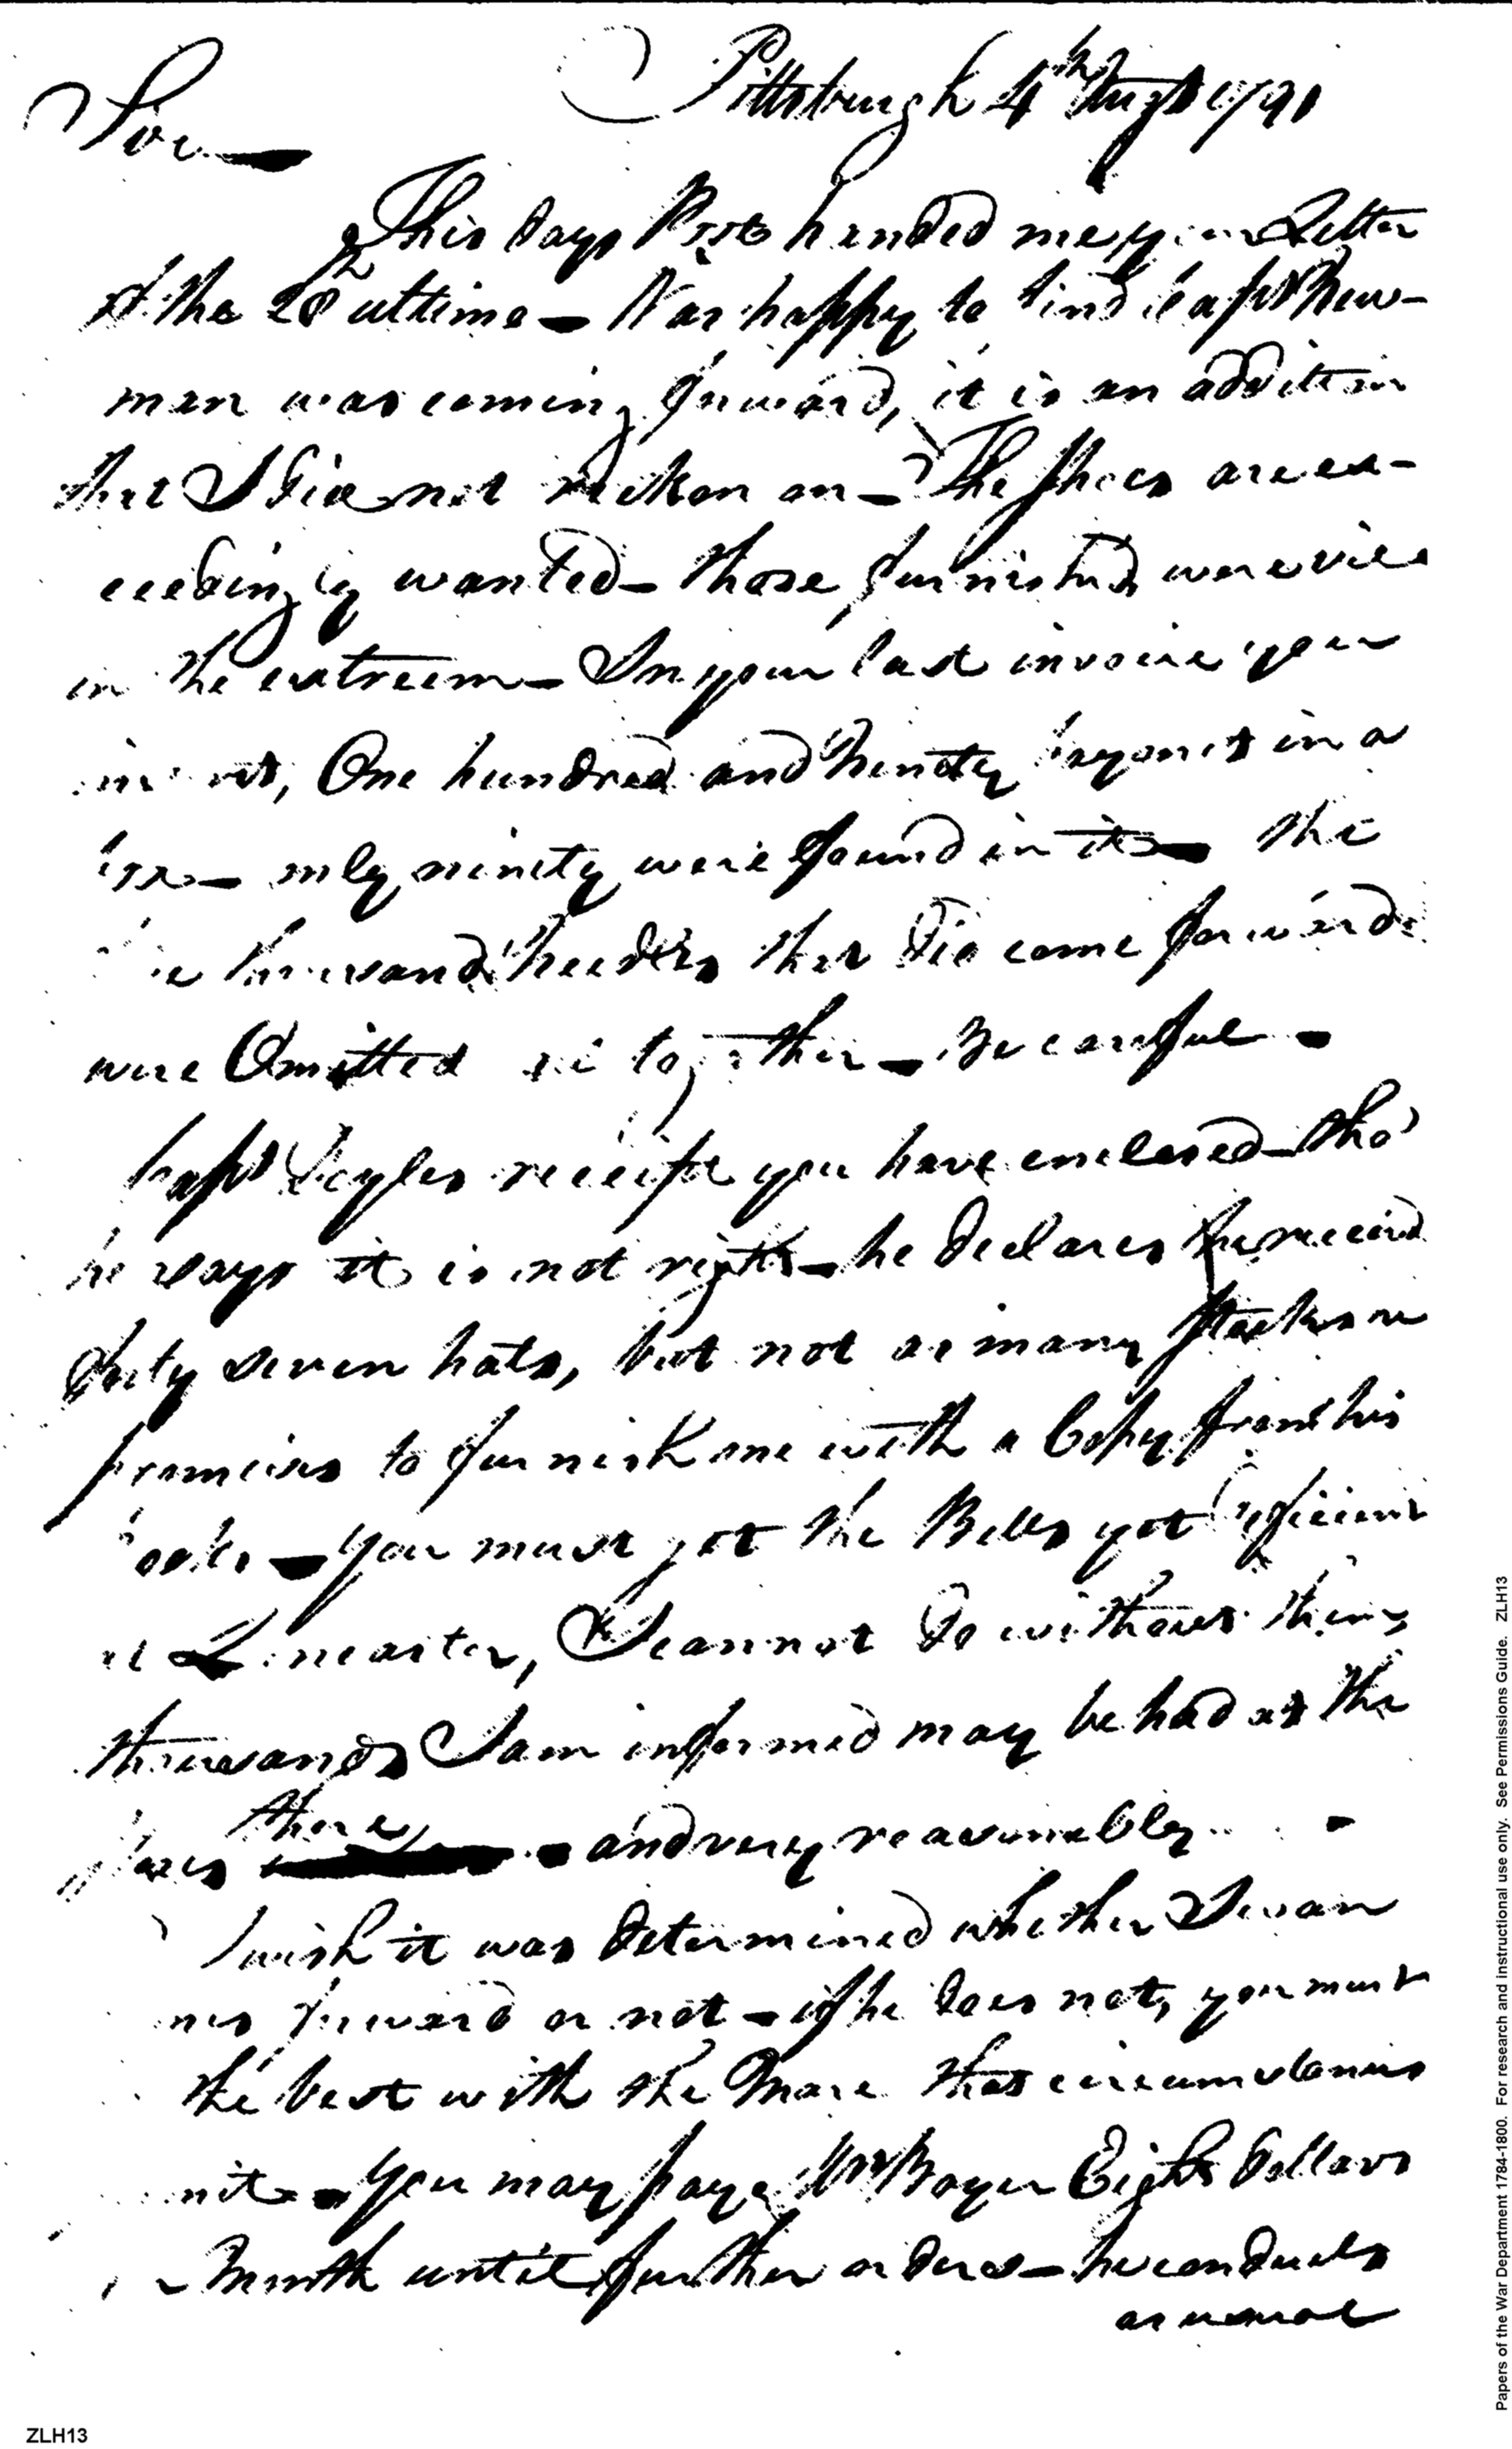 Pittsburgh 4th Augt 1791
Sir
This days Post handed me your Letter
of the 28th ultimo — Was happy to find Capt New-
man was coming forward, it is an addition
that I did not reckon on — The Shoes are ex-
ceedingly wanted — those furnished were vile
in the extreem — In your last invoice you
One hundred and Ninety bayonets in a
box — only ninety were found in it — the
thousand that did come forward
were Omitted altogether — Be careful —
Capt receipt you have enclosed — tho'
he says it is not right — he declares he receivd
forty seven hats, but not as many Stocks
promises to furnish me with a Copy from his
books — You must get the Bells yet
at Lancaster, I cannot do without them,
thousands I am informed may be had at the
there and very reasonably
I wish it was determined whether Swan
forward or not — if he does not, you must
the best with the Mare that circumstances
You may pay Mr Boyer Eight dollars
Month until further orders — he conducts
as usual
ZLH13
Papers of the War Department 1784-1800. For research and instructional use only. See Permissions Guide. ZLH13